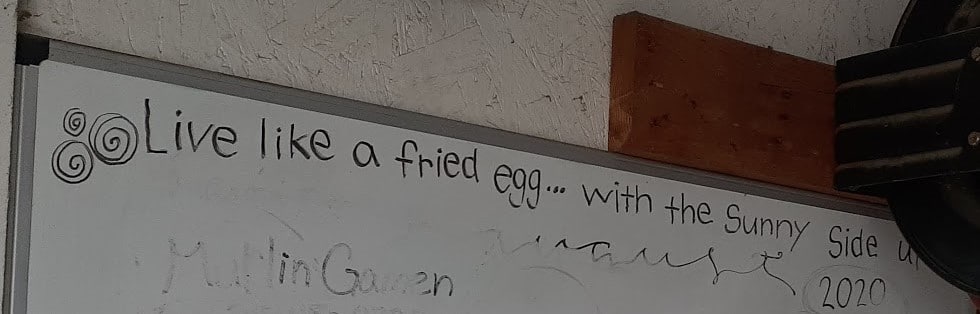 Live like a fried egg... with the Sunny Side u
August
2020